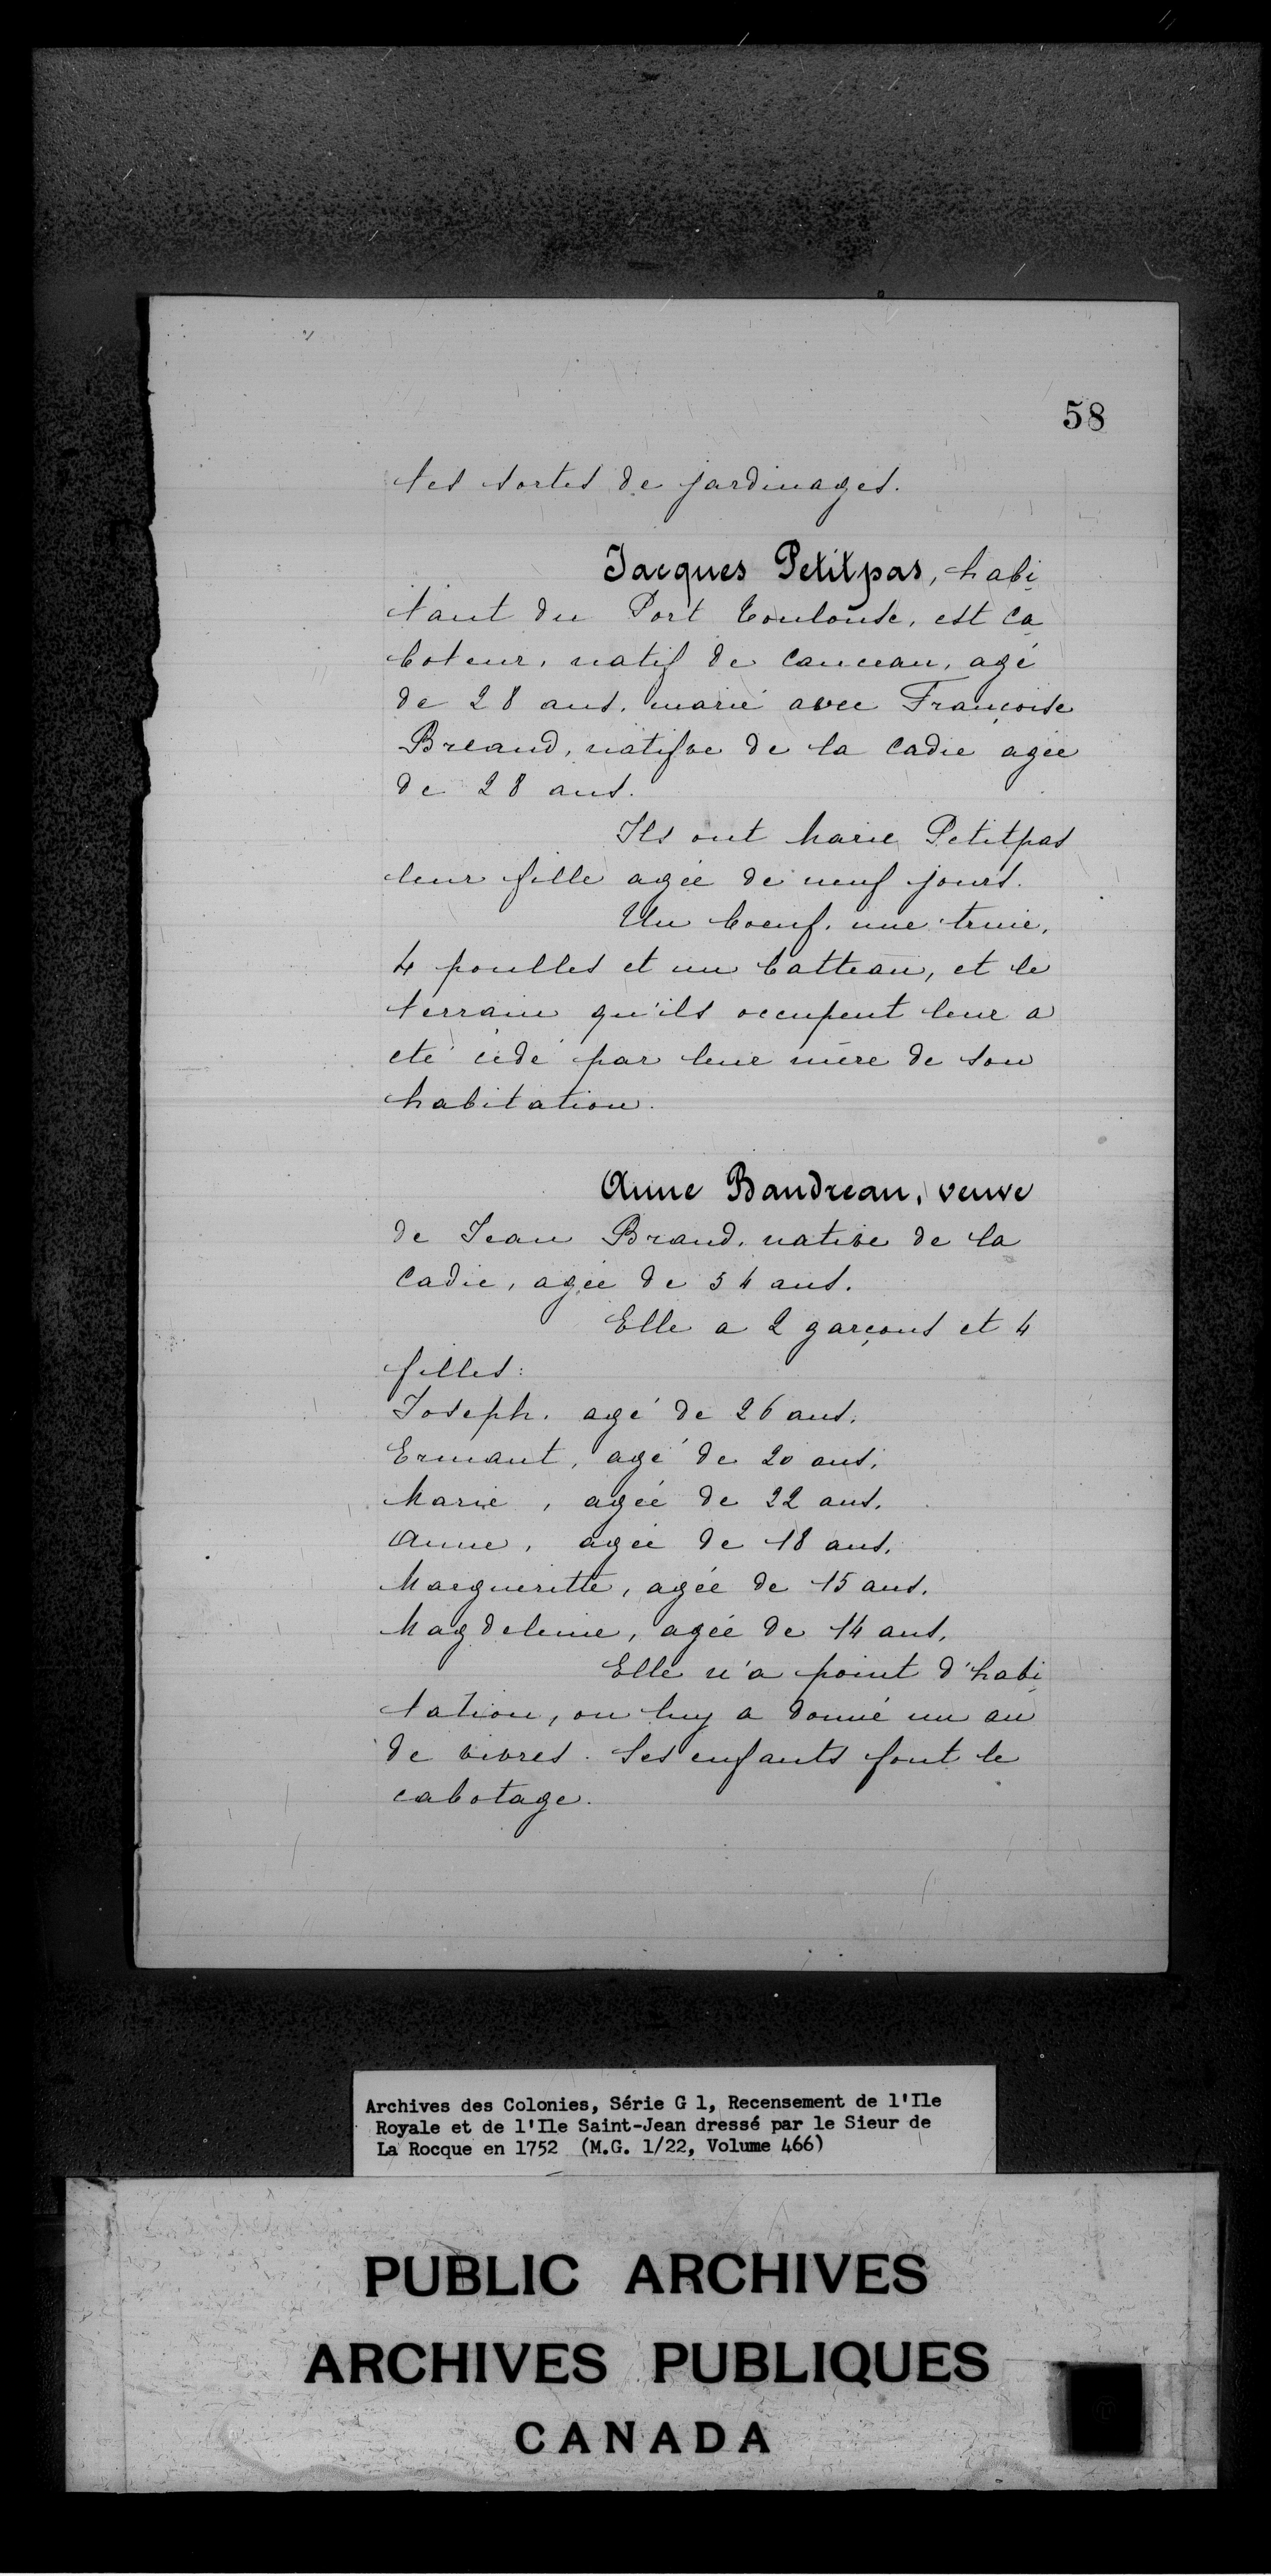 58
tes sortes de jardinages.
Jacques Petitpas, habi
tant du Port Toulouse, est ca
boteur, natif de Canceau, agé
de 28 ans, marié avec Françoise
Breaud, natifve de la Cadie agée
de 28 ans.
Ils ont Marie Petitpas
leur fille agée de neuf jours.
Un boeuf, une truie,
4 poulles et un batteau, et le
terrain qu'ils occupent leur a
eté cédé par leur mère de son
habitation.
Anne Baudreau, veuve
de Jean Braud, native de la
Cadie, agée de 54 ans.
Elle a 2 garçons et 4
filles:
Joseph, agé de 26 ans,
Ermant, agé de 20 ans,
Marie, agée de 22 ans,
Anne, agée de 18 ans,
Margueritte, agée de 15 ans,
Magdeleine, agée de 14 ans,
Elle n'a point d'habi
tation, on luy a donné un an
de vivres. Ses enfants font le
cabotage.
Archives des Colonies, Série G 1, Recensement de l'Ile
Royale et de l'Ile Saint-Jean dressé par le Sieur de
La Rocque en 1752 (M.G. 1/22, Volume 466)
PUBLIC ARCHIVES
ARCHIVES PUBLIQUES
CANADA